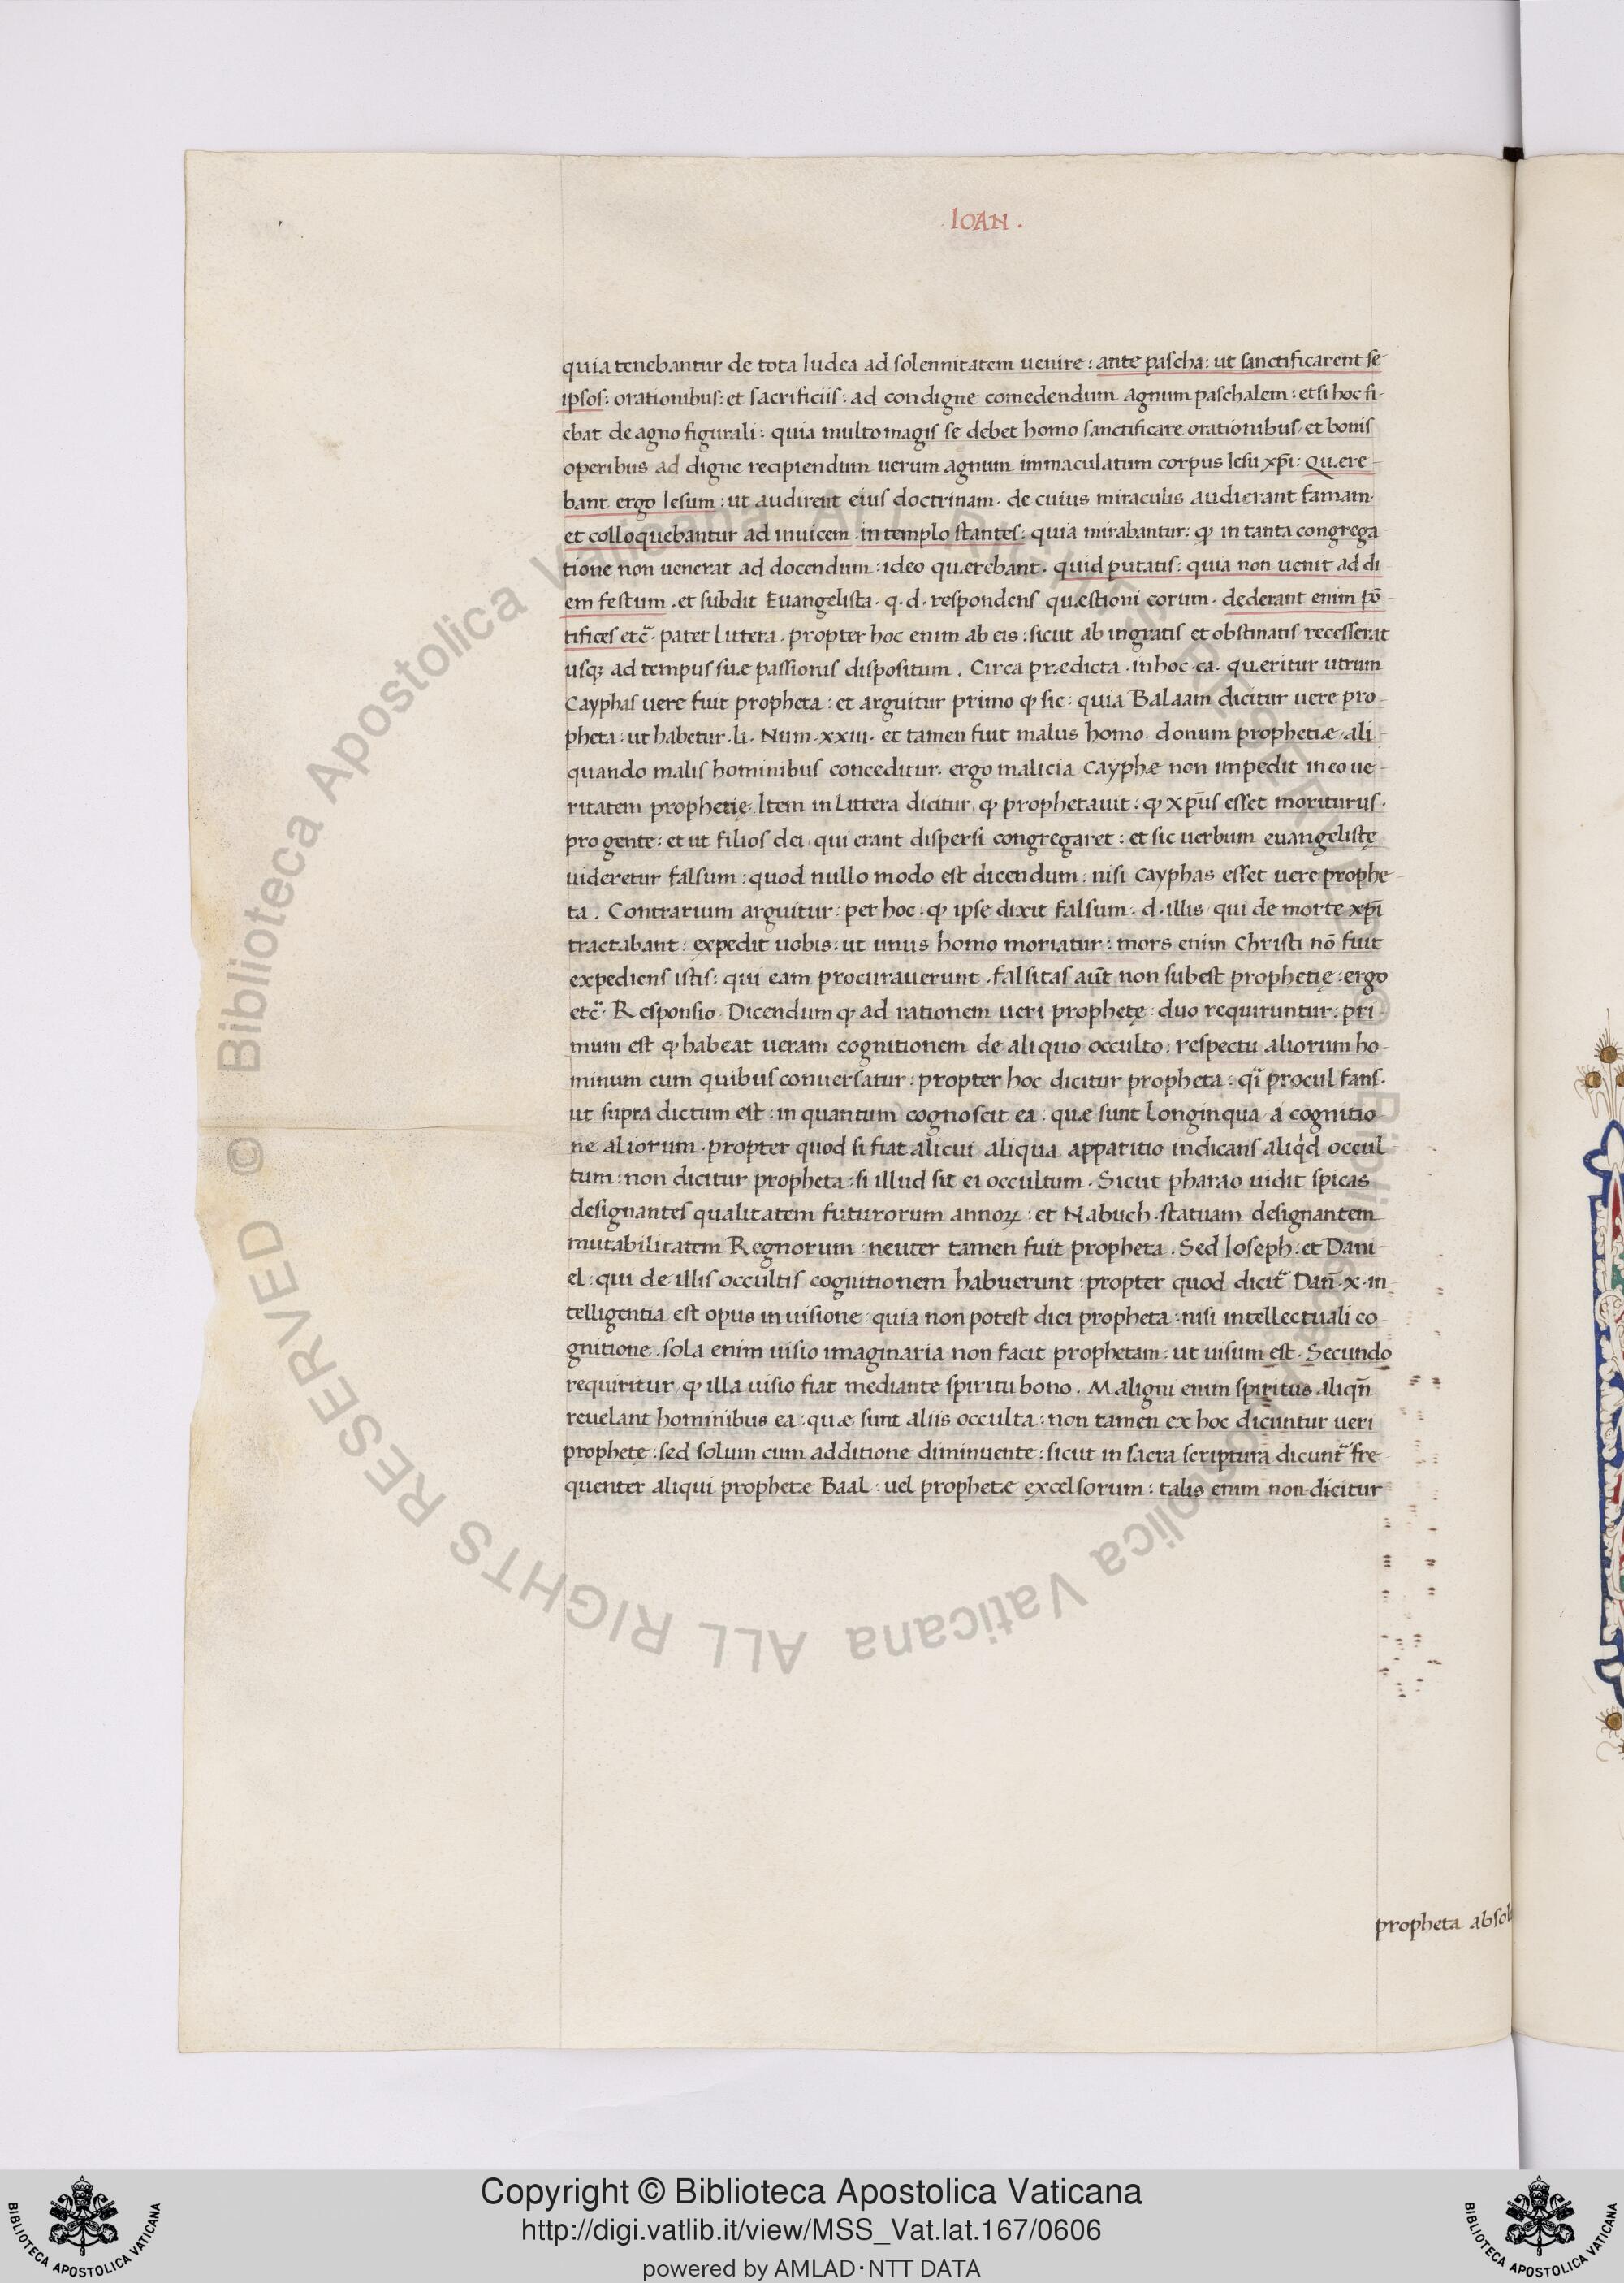 .IOAN.
quia tenebantur de tota Iudea ad solennitatem uenire: ante pascha: ut sanctificarent se
ipsos: orationibus: et sacrificiis: ad condigne comedendum agnum paschalem: et si hoc fi-
ebat de agno figurali: quia multo magis se debet homo sanctificare orationibus et bonis
operibus ad digne recipiendum uerum agnum immaculatum corpus Iesu xp̄i: Quere-
bant ergo Iesum: ut audirent eius doctrinam. de cuius miraculis audierant famam.
et colloquebantur ad inuicem. in templo stantes: quia mirabantur: ꝙ in tanta congrega-
tione non uenerat ad docendum: ideo querebant. quid putatis: quia non uenit ad di
em festum. et subdit Euangelista. q. d. respondens quæstioni eorum. dederant enim pō-
tifices etc̃. patet littera. propter hoc enim ab eis: sicut ab ingratis et obstinatis recesserat
usqꝫ ad tempus suæ passionis dispositum. Circa prædicta. in hoc. ca. quæritur utrum
Cayphas uere fuit propheta: et arguitur primo ꝙ sic: quia Balaam dicitur uere pro-
pheta: ut habetur. li. Num. xxiii. et tamen fuit malus homo. donum prophetiæ ali-
quando malis hominibus conceditur. ergo malicia Cayphæ non impedit in eo ue-
ritatem prophetię. Item in littera dicitur ꝙ prophetauit: ꝙ xp̄us esset moriturus.
pro gente: et ut filios dei qui erant dispersi congregaret: et sic uerbum euangelistę
uideretur falsum: quod nullo modo est dicendum: nisi Cayphas esset uere prophe-
ta. Contrarium arguitur: per hoc. ꝙ ipse dixit falsum. d. illis qui de morte xp̄i
tractabant: expedit uobis: ut unus homo moriatur: mors enim Christi nō fuit
expediens istis: qui eam procurauerunt. falsitas aūt non subest prophetię: ergo
etc̃. Responsio. Dicendum ꝙ ad rationem ueri prophetę: duo requiruntur: pri-
mum est ꝙ habeat ueram cognitionem de aliquo occulto: respectu aliorum ho-
minum cum quibus conuersatur: propter hoc dicitur propheta: qī procul fans.
ut supra dictum est: in quantum cognoscit ea: quæ sunt longinqua a cognitio
ne aliorum. propter quod si fiat alicui aliqua apparitio indicans aliqͥd occul
tum: non dicitur propheta: si illud sit ei occultum. Sicut pharao uidit spicas
designantes qualitatem futurorum annoꝝ: et Nabuch. statuam designantem
mutabilitatem Regnorum: neuter tamen fuit propheta. Sed Ioseph: et Dani-
el: qui de illis occultis cognitionem habuerunt: propter quod dicit̃ Dañ. x. in
telligentia est opus in uisione: quia non potest dici propheta: nisi intellectuali co-
gnitione. sola enim uisio imaginaria non facit prophetam: ut uisum est. Secundo
requiritur ꝙ illa uisio fiat mediante spiritu bono. Maligni enim spiritus aliqñ
reuelant hominibus ea: quæ sunt aliis occulta: non tamen ex hoc dicuntur ueri
prophetę: sed solum cum additione diminuente: sicut in sacra scriptura dicunt̃ fre
quenter aliqui prophetæ Baal: uel prophetæ excelsorum: talis enim non dicitur
propheta absol
Copyright © Biblioteca Apostolica Vaticana
http://digi.vatlib.it/view/MSS_Vat.lat.167/0606
powered by AMLAD·NTT DATA
BIBLIOTECA APOSTOLICA VATICANA
BIBLIOTECA APOSTOLICA VATICANA
© Biblioteca Apostolica Vaticana ALL RIGHTS RESERVED
© Biblioteca Apostolica Vaticana ALL RIGHTS RESERVED